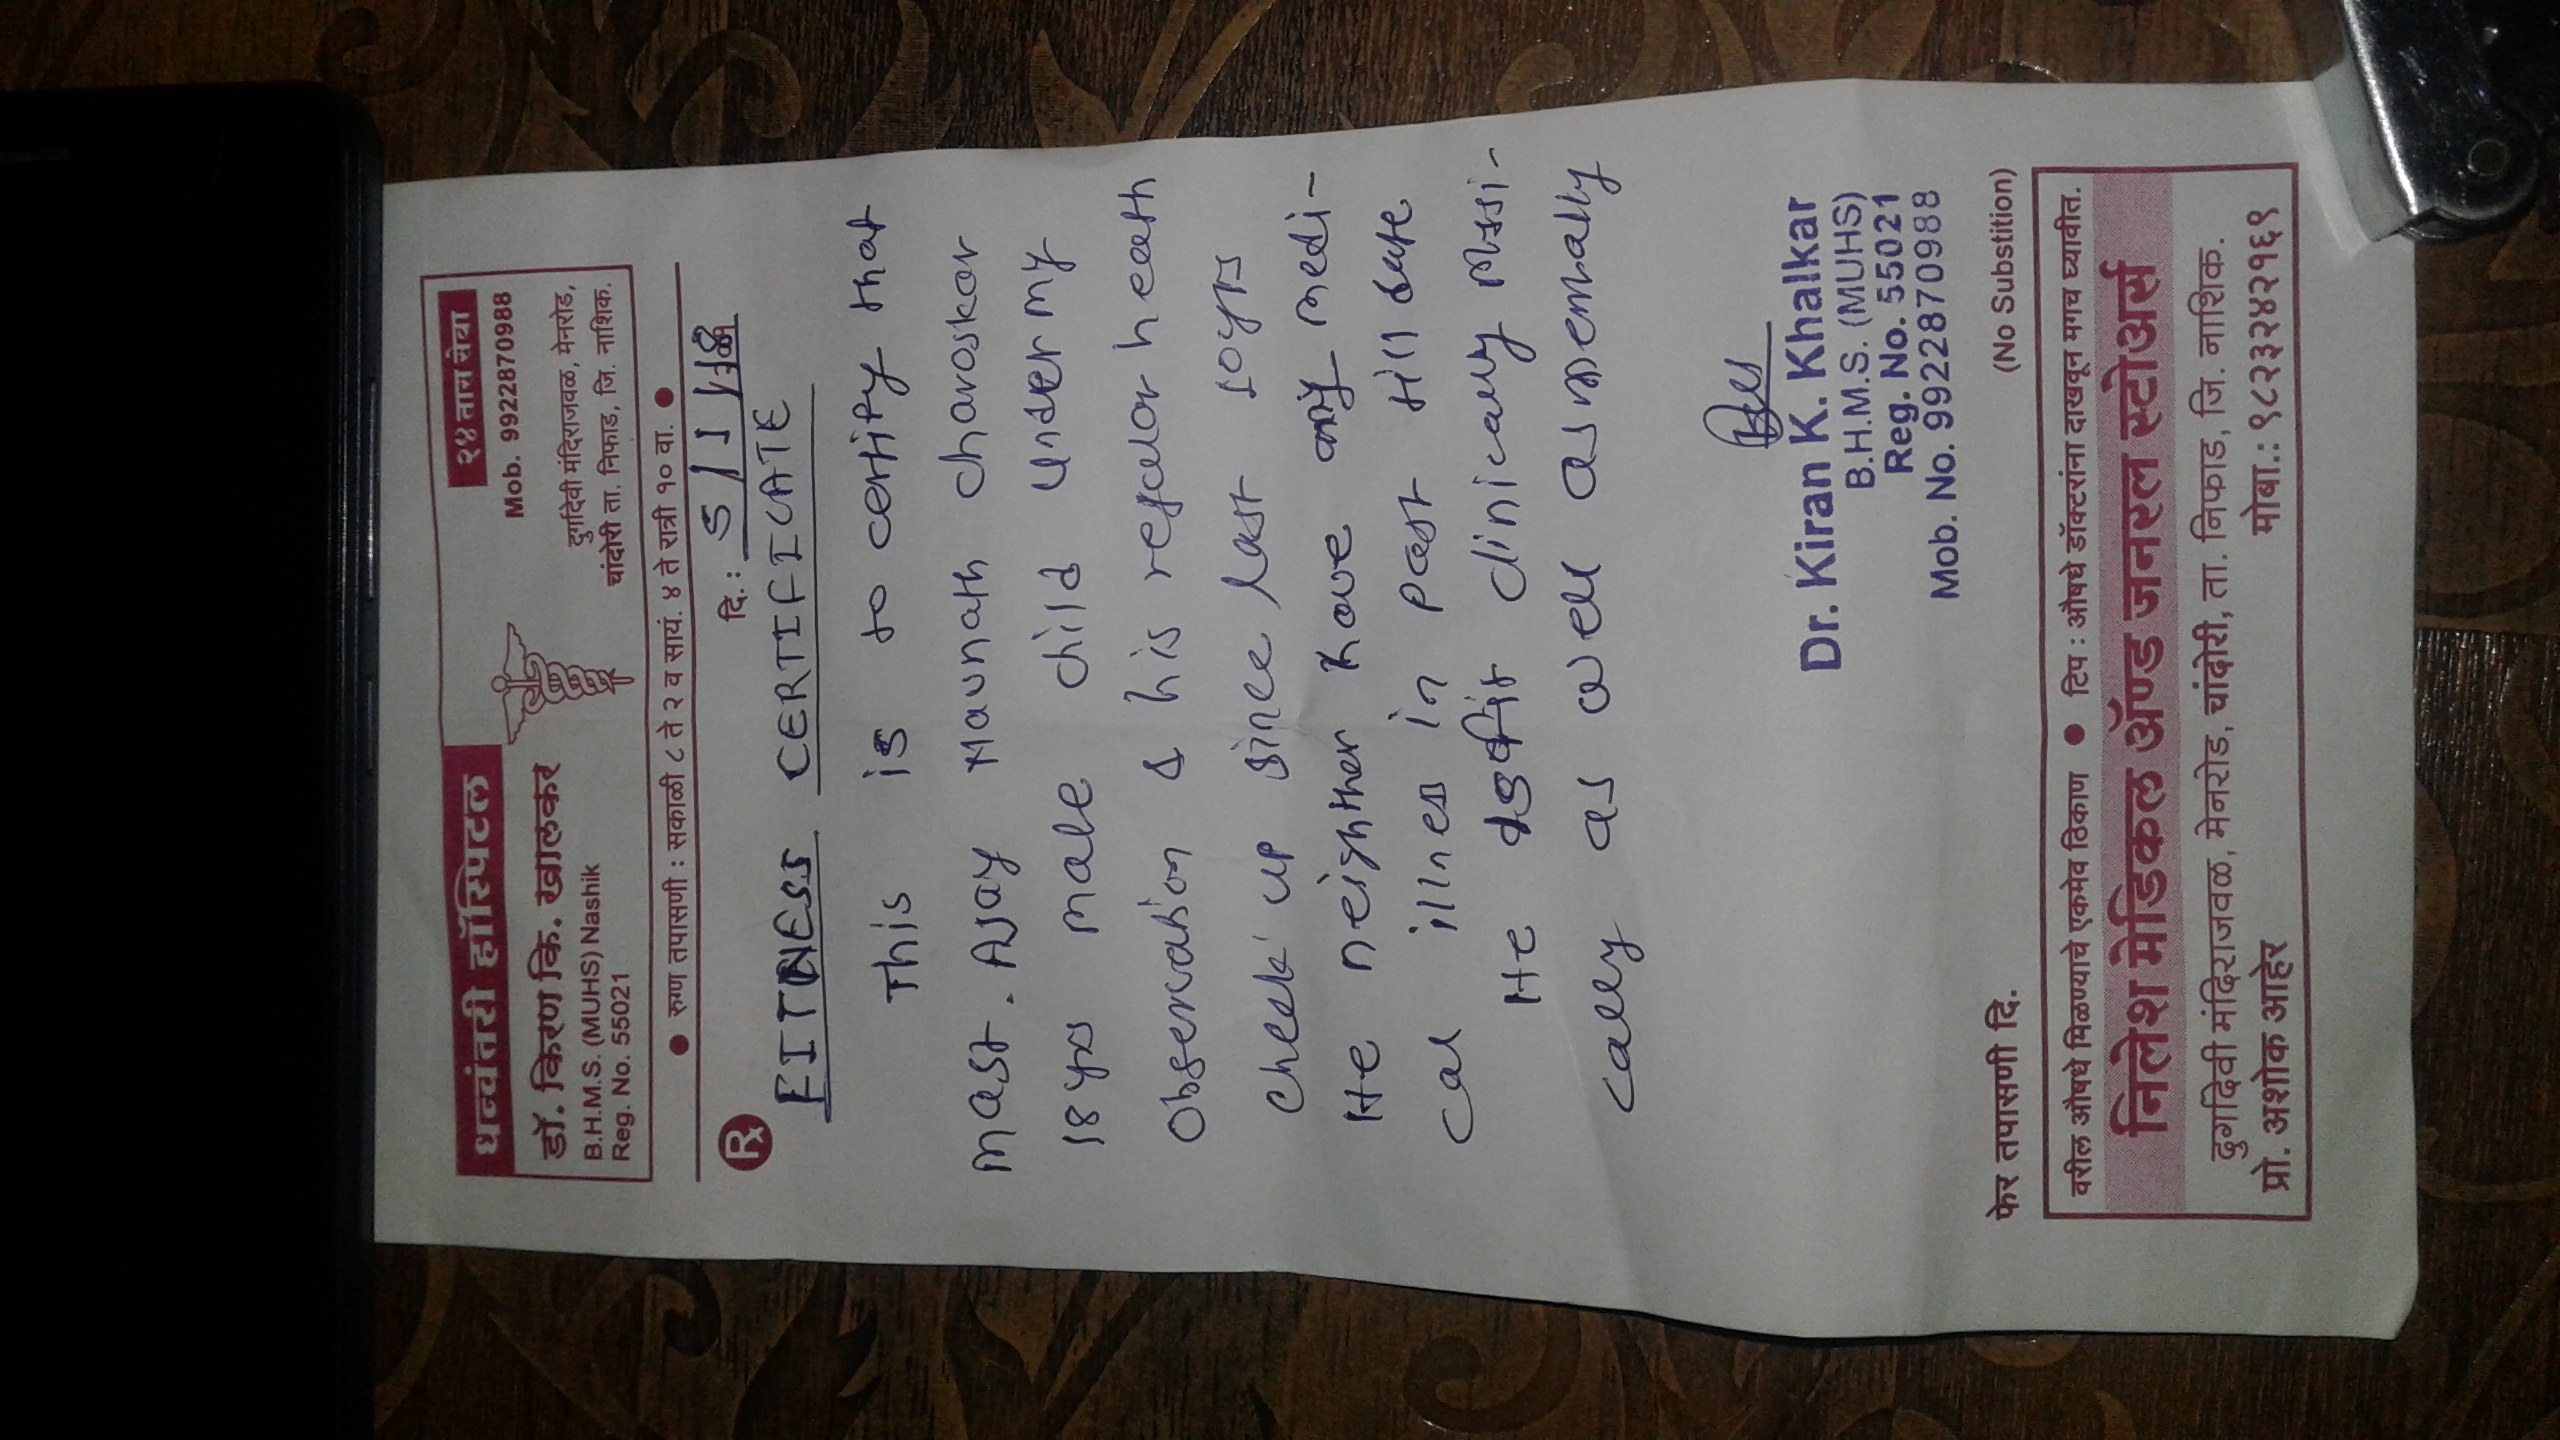 धन्वंतरी हॉस्पिटल
२४ तास सेवा
डॉ. किरण कि. खालकर
Mob. 9922870988
B.H.M.S. (MUHS) Nashik
Reg. No. 55021
दुर्गादेवी मंदिराजवळ, मेनरोड,
चांदोरी ता. निफाड, जि. नाशिक.
● रुग्ण तपासणी : सकाळी ८ ते २ व सायं. ४ ते रात्री १० वा. ●
दि. : 5/1/18
Rx
FITNESS CERTIFICATE
This is to certify that
Mast. Ajay Navnath charoskar
18yrs male child under my
Observation & his regular heath
Check up since last 10yrs
He neighther have any medi-
cal illness in past till date
He is fit clinically Pyssi-
cally as well as mentally
Dr. Kiran K. Khalkar
B.H.M.S. (MUHS)
Reg. No. 55021
Mob. No. 9922870988
फेर तपासणी दि.
(No Substition)
वरील औषधे मिळण्याचे एकमेव ठिकाण ● टिप : औषधे डॉक्टरांना दाखवून मगच घ्यावीत.
निलेश मेडिकल ॲण्ड जनरल स्टोअर्स
दुर्गादेवी मंदिराजवळ, मेनरोड, चांदोरी, ता. निफाड, जि. नाशिक.
प्रो. अशोक आहेर
मोबा.: ९८२३२४२१६९